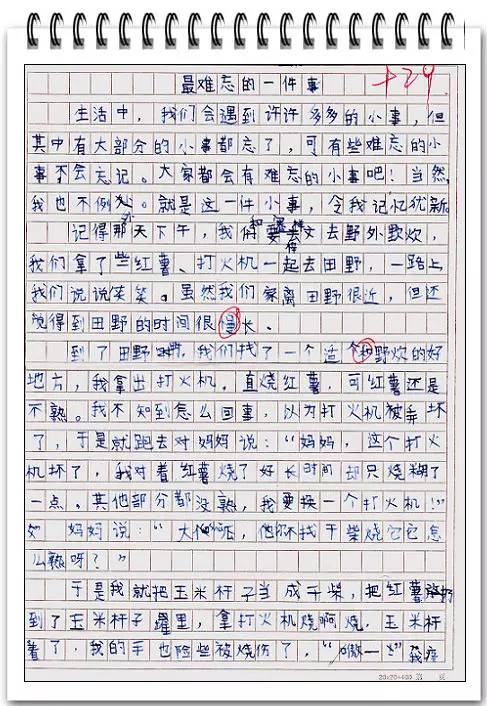 最难忘的一件事
+29
生活中，我们会遇到许许多多的小事，但
其中有大部分的小事都忘了，可有些难忘的小
事不会忘记。大家都会有难忘的小事吧！当然，
我也不例外。就是这一件小事，令我记忆犹新
记得那天下午，我和去野外野炊，
我们拿了些红薯、打火机一起去田野，一路上
我们说说笑笑。虽然我们家离田野很近，但还
觉得到田野的时间很慢长、
到了田野时，我们找了一个适个和野炊的好
地方，我拿出打火机。直烧红薯，可红薯还是
不熟。我不知到怎么回事，以为打火机被弄坏
了，于是就跑去对妈妈说：“妈妈，这个打火
机坏了，我对着红薯烧了好长时间却只烧糊了
一点。其他部分都没熟，我要换一个打火机！”
妈妈说：“大，他不找干柴烧它它怎
么熟呀？”
于是我就把玉米杆子当成干柴，把红薯扔
到了玉米杆子里，拿打火机烧啊烧，玉米杆
着了，我的手也险些被烧伤了，“嗷一”我痊
20×20=400 第 页